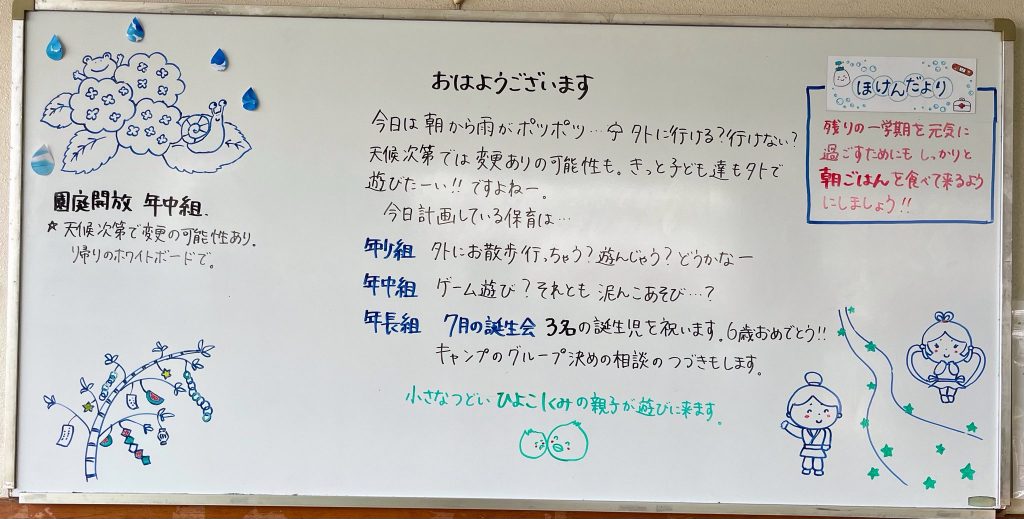 おはようございます
今日は朝から雨がポツポツ…外に行ける？行けない？
天候次第では変更ありの可能性も。きっと子ども達も外で
遊びたーい!!ですよねー。
今日計画している保育は…
年少組 外にお散歩行っちゃう？遊んじゃう？どうかなー
年中組 ゲーム遊び？それとも泥んこあそび…？
年長組 7月の誕生会 3名の誕生児を祝います。6歳おめでとう!!
キャンプのグループ決めの相談のつづきもします。
小さなつどい ひよこ1くみの親子が遊びに来ます。
園庭開放 年中組.
☆天候次第で変更の可能性あり.
帰りのホワイトボードで。
ほけんだより
残りの一学期を元気に
過ごすためにもしっかりと
朝ごはんを食べて来るよう
にしましょう!!